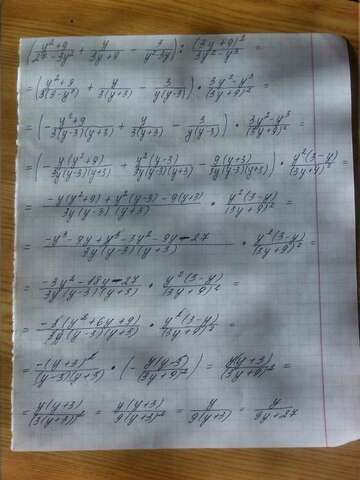 ((y²+9)/(27-3y²) + y/(3y+9) - 3/(y²-3y)) : (3y+9)²/(3y²-y³) =
= ((y²+9)/(3(3-y²)) + y/(3(y+3)) - 3/(y(y-3))) · (3y²-y³)/(3y+9)² =
= (-(y²+9)/(3(y-3)(y+3)) + y/(3(y+3)) - 3/(y(y-3))) · (3y²-y³)/(3y+9)² =
= (-y(y²+9)/(3y(y-3)(y+3)) + y²(y-3)/(3y(y-3)(y+3)) - 9(y+3)/(3y(y-3)(y+3))) · y²(3-y)/(3y+9)² =
= (-y(y²+9)+y²(y-3)-9(y+3))/(3y(y-3)(y+3)) · y²(3-y)/(3y+9)² =
= (-y³-9y+y³-3y²-9y-27)/(3y(y-3)(y+3)) · y²(3-y)/(3y+9)² =
= (-3y²-18y-27)/(3y(y-3)(y+3)) · y²(3-y)/(3y+9)² =
= -3(y²+6y+9)/(3y(y-3)(y+3)) · y²(3-y)/(3y+9)² =
= -(y+3)²/((y-3)(y+3)) · (-y(y-3)/(3y+9)²) = y(y+3)/(3y+9)² =
= y(y+3)/(3(y+3))² = y(y+3)/9(y+3)² = y/9(y+3) = y/(9y+27)